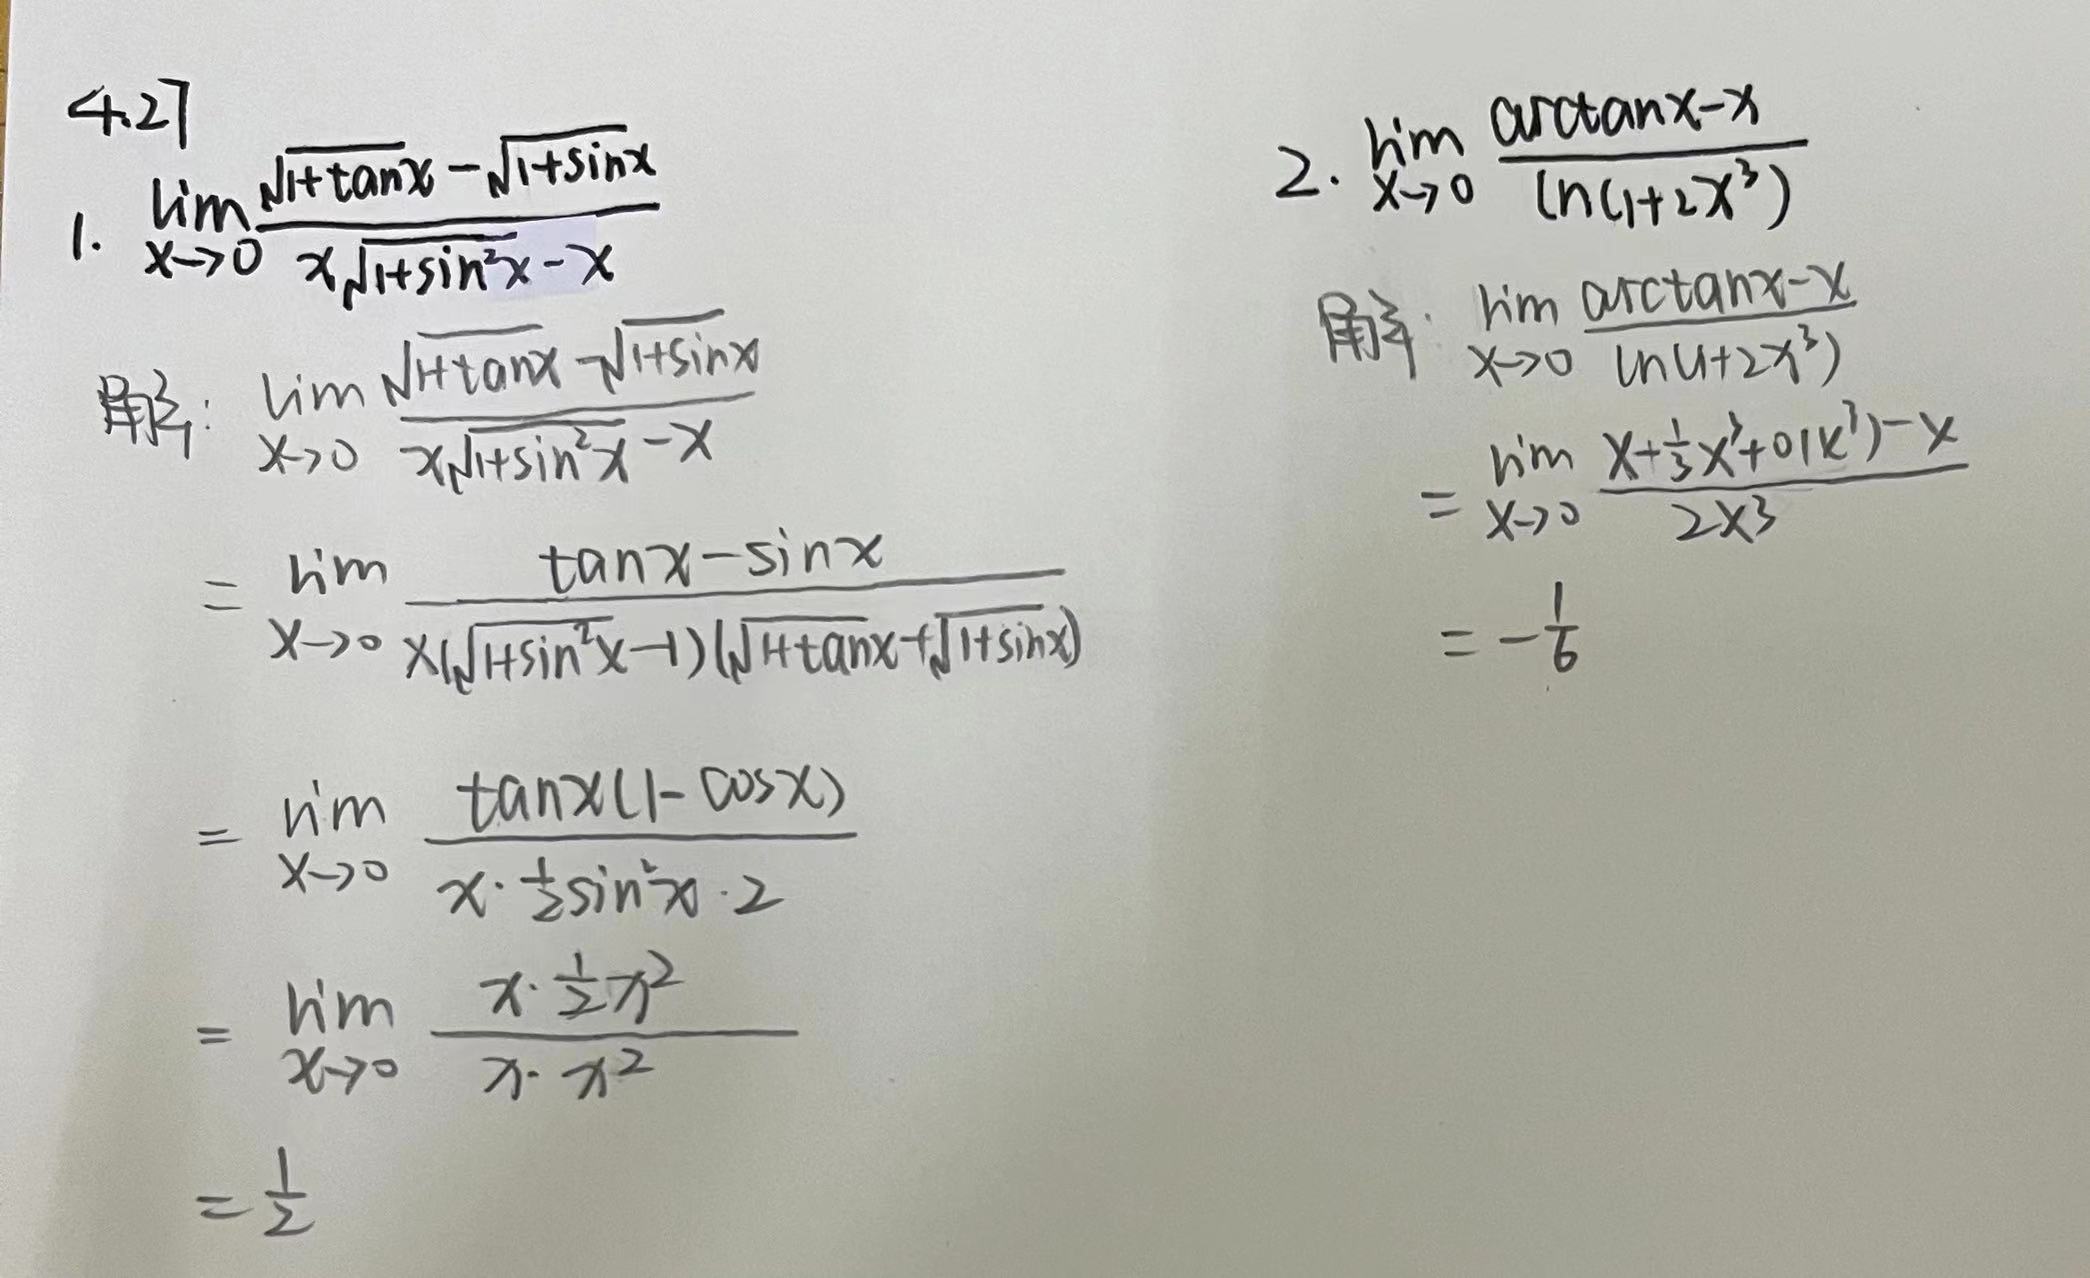 4.27
1. lim_{x→0} (√(1+tanx) − √(1+sinx)) / (x√(1+sin²x) − x)
解: lim_{x→0} (√(1+tanx) − √(1+sinx)) / (x√(1+sin²x) − x)
= lim_{x→0} (tanx − sinx) / (x(√(1+sin²x) − 1)(√(1+tanx) + √(1+sinx)))
= lim_{x→0} (tanx(1 − cosx)) / (x · ½sin²x · 2)
= lim_{x→0} (x · ½x²) / (x · x²)
= 1/2
2. lim_{x→0} (arctanx − x) / (ln(1+2x³))
解: lim_{x→0} (arctanx − x) / (ln(1+2x³))
= lim_{x→0} (x + ⅓x³ + o(x³) − x) / (2x³)
= −1/6